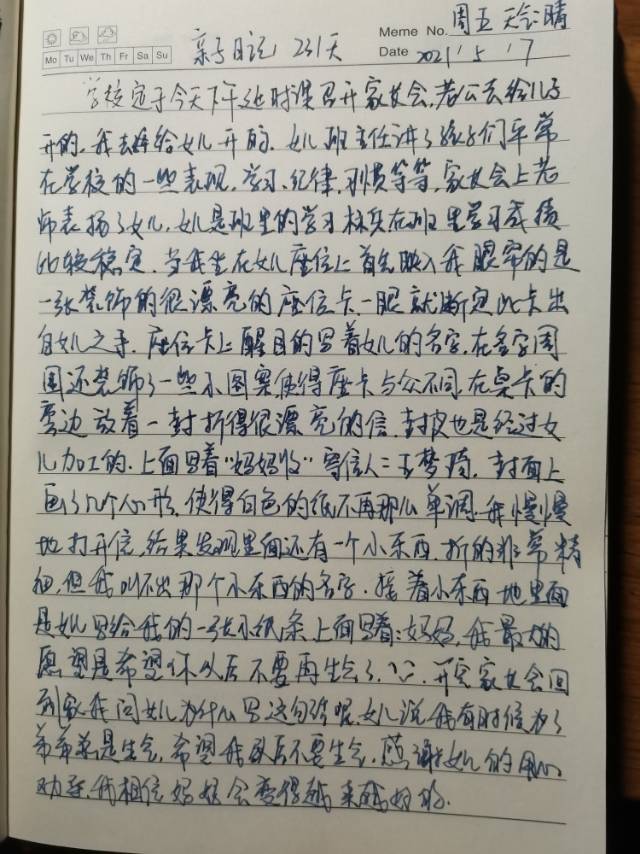 Meme No. 周五 天气:晴
Mo Tu We Th Fr Sa Su
亲子日记 231天
Date 2021/5/7
学校定于今天下午延时课召开家长会,老公去给儿子
开的,我去给女儿开的,女儿班主任讲了孩子们平常
在学校的一些表现,学习、纪律、习惯等等,家长会上老
师表扬了女儿,女儿是班里的学习标兵在班里学习成绩
比较稳定,当我坐在女儿座位上首先映入我眼帘的是
一张装饰的很漂亮的座位卡,一眼就断定此卡出
自女儿之手,座位卡上醒目的写着女儿的名字,在名字周
围还装饰了一些小图案使得座卡与众不同,在桌卡的
旁边放着一封折得很漂亮的信,封皮也是经过女
儿加工的,上面写着"妈妈收"寄信人:王梦琦,封面上
画了几个心形,使得白色的纸不再那么单调,我慢慢
地打开信,结果发现里面还有一个小东西,折的非常精
细,但我叫不出那个小东西的名字,接着小东西地里面
是女儿写给我的一张小纸条上面写着:妈妈,我最大的
愿望是希望你从后不要再生气了,开完家长会回
到家我问女儿为什么写这句话呢,女儿说我有时候为了
弟弟总是生气,希望我以后不要生气,感谢女儿的用心
劝导,我相信妈妈会变得越来越好的.